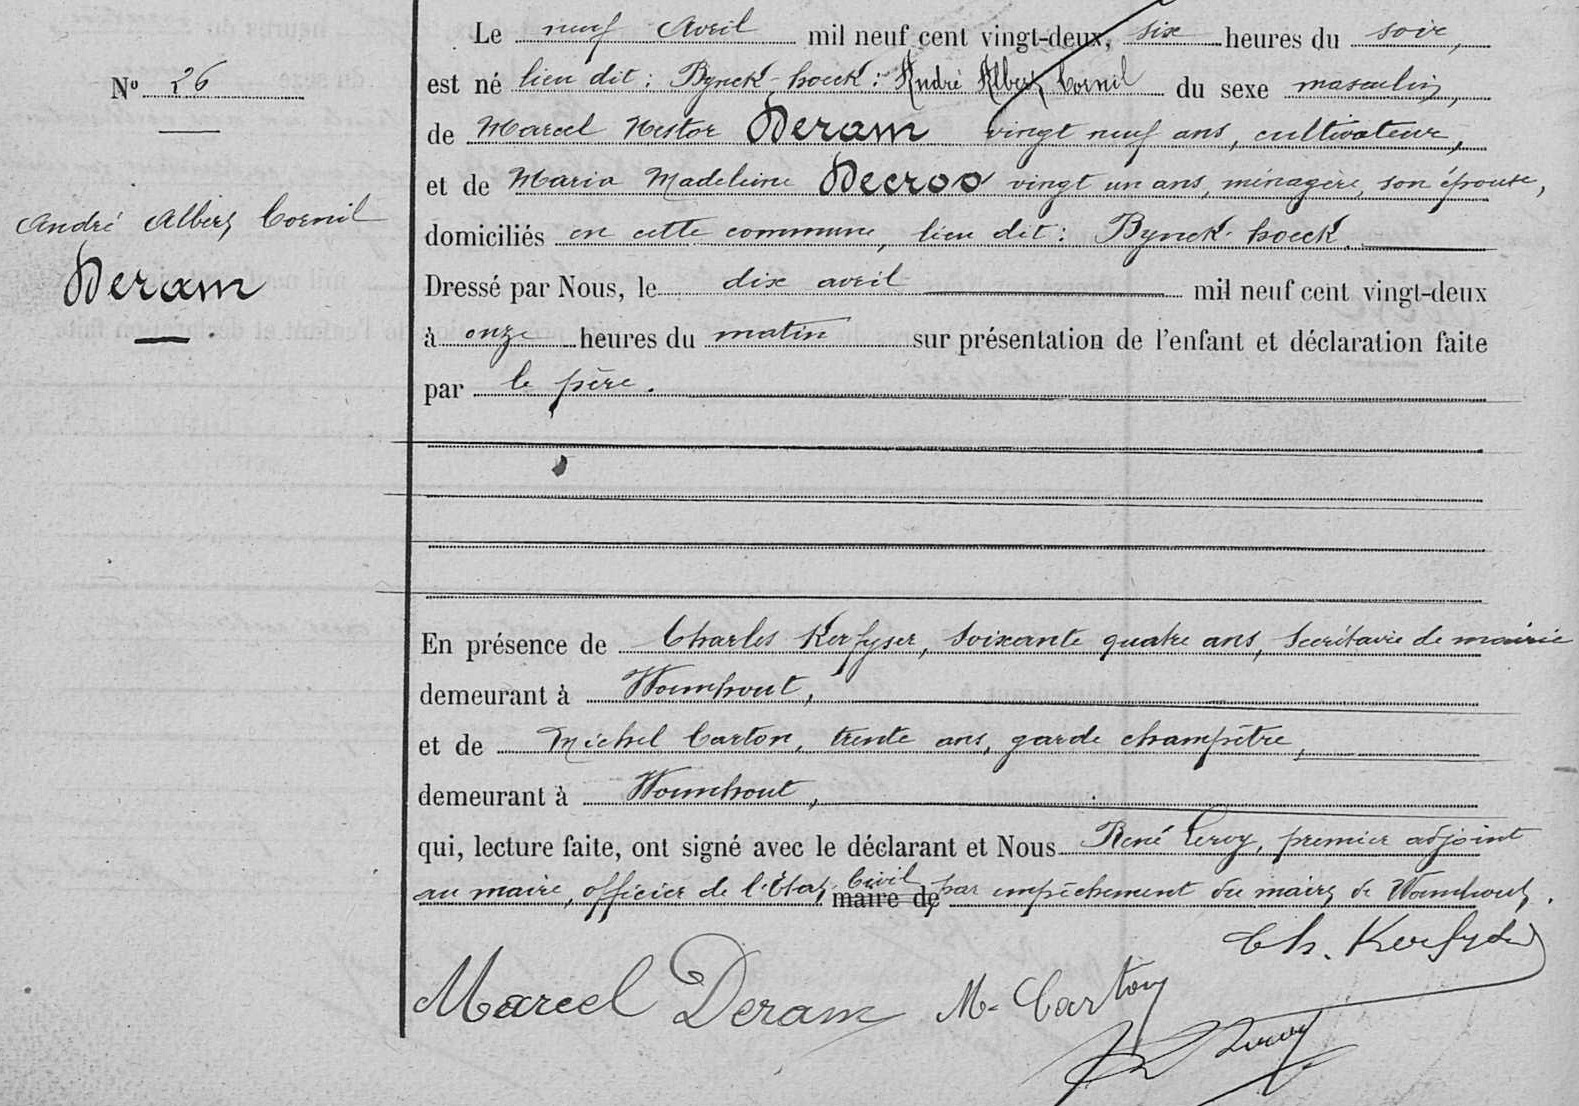 Le neuf Avril mil neuf cent vingt-deux, six heures du soir,
Nº 26
est né lieu dit : Bynck-hoeck : André Albert Cornil du sexe masculin,
de Marcel Nestor Deram vingt neuf ans, cultivateur,
et de Maria Madeleine Decroo vingt un ans, ménagère, son épouse,
André Albert Cornil
Deram
domiciliés en cette commune, lieu dit : Bynck-hoeck.
Dressé par Nous, le dix avril mil neuf cent vingt-deux
à onze heures du matin sur présentation de l'enfant et déclaration faite
par le père.
En présence de Charles Kerfyser, soixante quatre ans, secrétaire de mairie
demeurant à Wormhout,
et de Michel Carton, trente ans, garde champêtre,
demeurant à Wormhout,
qui, lecture faite, ont signé avec le déclarant et Nous René Leroy, premier adjoint
au maire, officier de l'Etat Civil maire de par empêchement du maire de Wormhout.
Ch. Kerfyser
Marcel Deram M. Carton
R Leroy